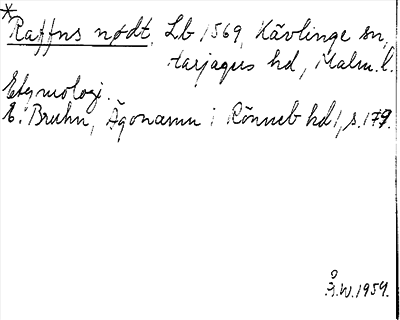 *Raffns nødt, Lb 1569, Kävlinge sn,
Harjagers hd, Malm. l.
Etymologi.
E. Bruhn, Ägonamn i Rönneb hd 1, s. 179.
Å.W. 1959.